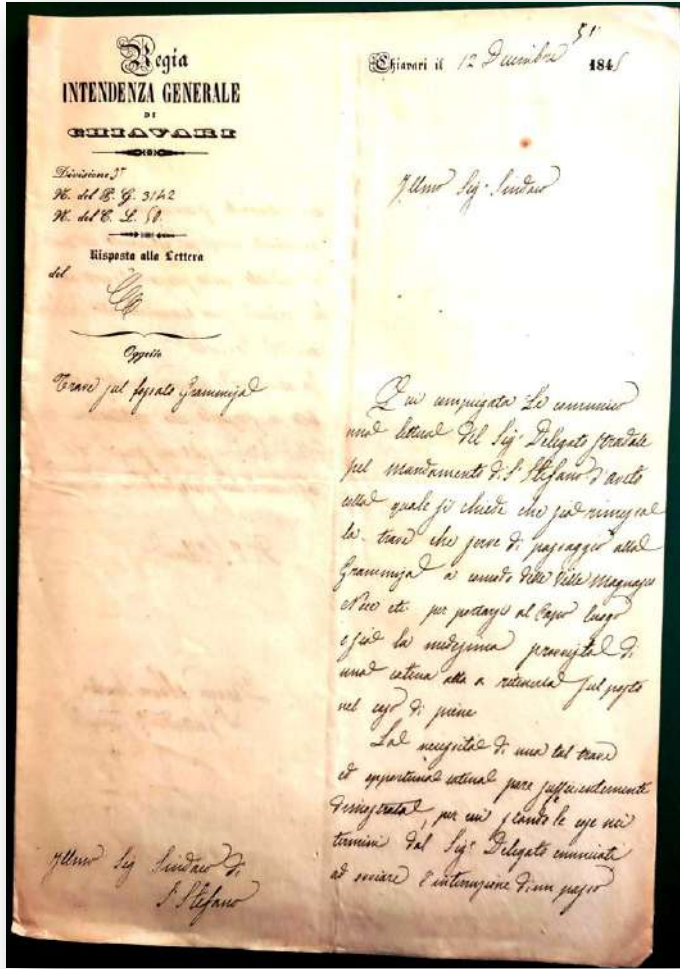 Regia
INTENDENZA GENERALE
DI
CHIAVARI
Divisione 3ª
N. del P. G. 3142
N. del C. L. 50.
Risposta alla Lettera
del
Oggetto
Trave sul fossato Grammizza
51
Chiavari il 12 Decembre 184
Illmo Sigr Sindaco
Qui compiegata Le comunico
una lettera del Sigr Delegato stradale
pel mandamento di S. Stefano d'aveto
colla quale si chiede che sia rimessa
la trave che serve di passaggio alla
Grammizza a comodo delle Ville Magnasco
Noce etc. per portarsi al Capo luogo
e sia la medesima provvista di
una catena atta a ritenerla sul posto
nel caso di piene
La necessità di una tal trave
ed opportuna catena pare sufficientemente
dimostrata, per cui stando le cose nei
termini dal Sigr Delegato enunciati
ad ovviare l'interruzione di un passo
Illmo Sig Sindaco di
S. Stefano